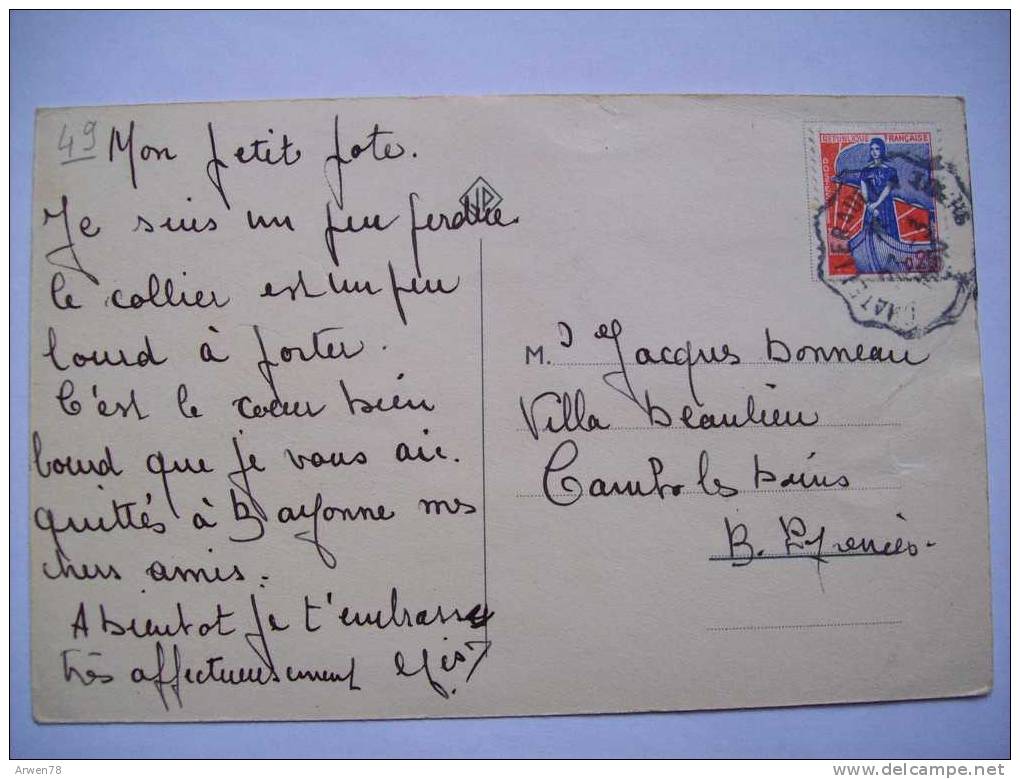 49
Mon petit pote.
Je suis un peu perdue
le collier est un peu
lourd à porter.
C'est le cœur bien
lourd que je vous ai
quittés à Bayonne mes
chers amis.
A bientot je t'embrasse
très affectueusement
REPUBLIQUE FRANÇAISE
M. Jacques Bonneau
Villa Beaulieu
Cambo les Bains
B. Pyrenées
Arwen78
www.delcampe.net